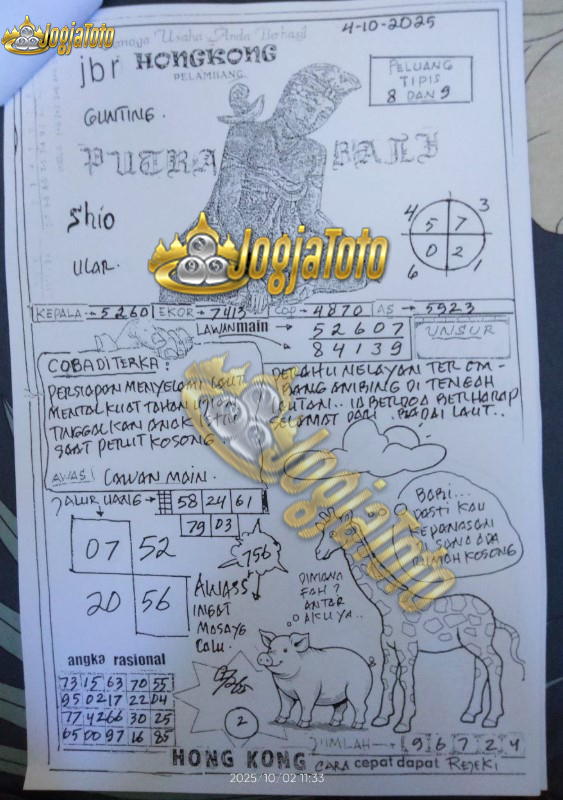 JogjaToto
Semoga Usaha Anda Berhasil
4-10-2025
jbr HONGKONG
PELAMBANG.
PELUANG
TIPIS
8 DAN 9
GUNTING.
PUTRA BALI
Shio
ULAR.
4 3
5 7
0 2
6 1
JogjaToto
KEPALA → 5260 EKOR → 7413 COP → 4870 AS → 5923
LAWAN main → 52607
84139
UNSUR
COBA DITERKA :
PERSIAPAN MENYELAMI LAUT
MENTAL KUAT TAHAN
TINGGALKAN ANAK ISTRI
SAAT PERUT KOSONG
AWAS! LAWAN MAIN.
PERAHU NELAYAN TEROM-
BANG AMBING DI TENGAH
LAUTAN.. IA BERDOA BERHARAP
SELAMAT DARI BADAI LAUT..
JogjaToto
JALUR UANG → 58 24 61
79 03
07 52
20 56
756
AWASS
INGAT
BABI...
PASTI KAU
KEPANASAN
KOSONG
DIMANA
ANTAR
AKU YA..
angka rasional
73 15 63 70 55
95 02 17 22 04
77 42 66 30 25
65 00 97 16 85
2
JUMLAH → 9 6 7 2 4
HONG KONG CARA cepat dapat REJEKI
2025/10/02 11:33